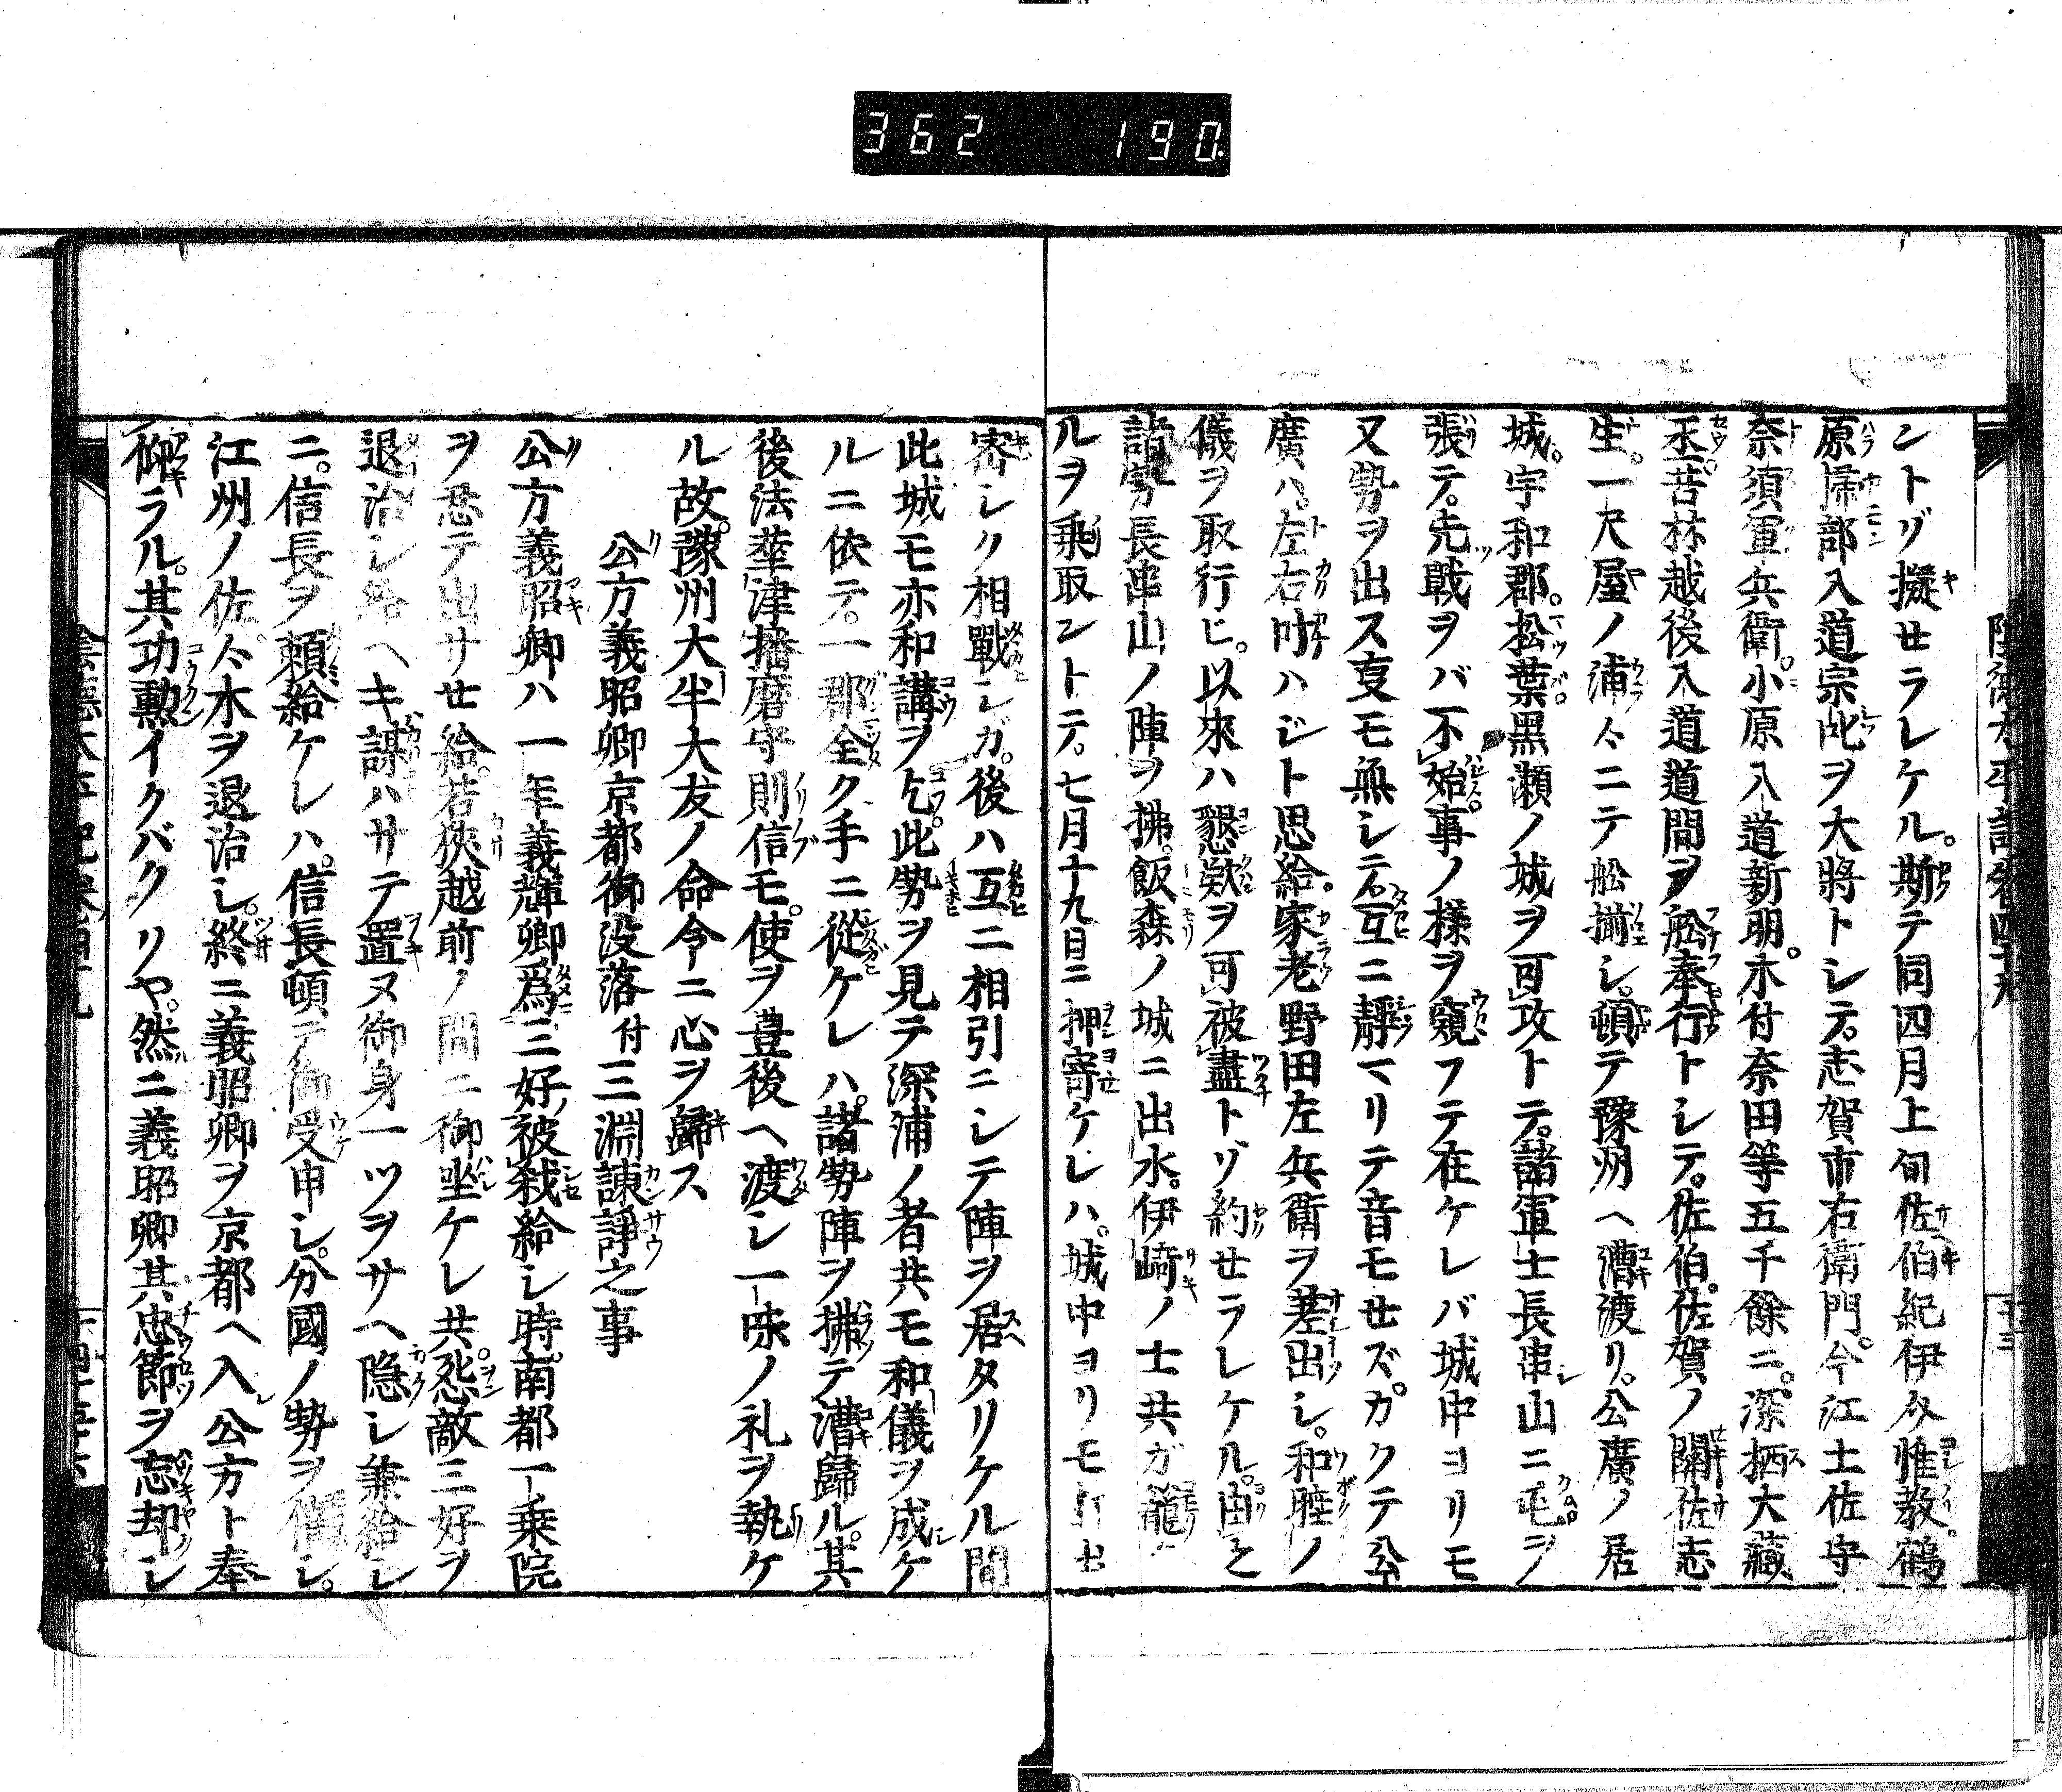 362 190.
ントゾ擬セラレケル。斯テ同四月上旬佐伯紀伊介惟教鶴
原掃部入道宗叱ヲ大將トシテ。志賀市右衛門。今江土佐守
奈須軍兵衛。小原入道新明。木付奈田等五千餘ニ。深栖大藏
丞。苔林越後入道道閒ヲ舩奉行トシテ。佐伯。佐賀ノ關佐志
生。一尺屋ノ浦々ニテ舩揃シ。頓テ豫州ヘ漕渡リ。公廣ノ居
城。宇和郡。松葉黒瀬ノ城ヲ可攻トテ。諸軍士長串山ニ屯ヲ
張テ。先戰ヲバ不始事ノ様ヲ窺フテ在ケレバ城中ヨリモ
又勢ヲ出ス支モ無シ互ニ靜マリテ音モセズ。カクテ公
廣ハ。左右叶ハジト思給。家老野田左兵衛ヲ差出シ。和睦ノ
儀ヲ取行ヒ。以來ハ懇欵ヲ可被盡トゾ約セラレケル。由之
諸勢長串山ノ陣ヲ拂。飯森ノ城ニ出水。伊崎ノ士共ガ籠ケ
ルヲ乗取ントテ。七月十九日ニ押寄ケレハ。城中ヨリモ打出
密シク相戰シガ。後ハ互ニ相引ニシテ陣ヲ居タリケル間
此城モ亦和講ヲ乞。此勢ヲ見テ深浦ノ者共モ和儀ヲ成ケ
ルニ依テ。一郡全ク手ニ從ケレハ。諸勢陣ヲ拂テ漕歸ル。其
後法華津播磨守則信モ。使ヲ豊後ヘ渡シ一味ノ礼ヲ執ケ
ル故。豫州大半大友ノ命令ニ心ヲ歸ス
公方義昭卿京都御没落付三淵諫諍之事
公方義昭卿ハ一年義輝卿爲三好被弑給シ時。南都一乗院
ヲ忍テ出サセ給。若狹越前ノ間ニ御坐ケレ共。怨敵三好ヲ
退治シ給ヘキ謀ハサテ置ヌ御身一ツヲサヘ隠シ兼給シ
ニ。信長ヲ頼給ケレハ。信長頓テ御受申シ。分國ノ勢ヲ催シ。
江州ノ佐々木ヲ退治シ。終ニ義昭卿ヲ京都ヘ入公方ト奉
仰ラル。其功勲イクバクリヤ。然ニ義昭卿其忠節ヲ忘却シ